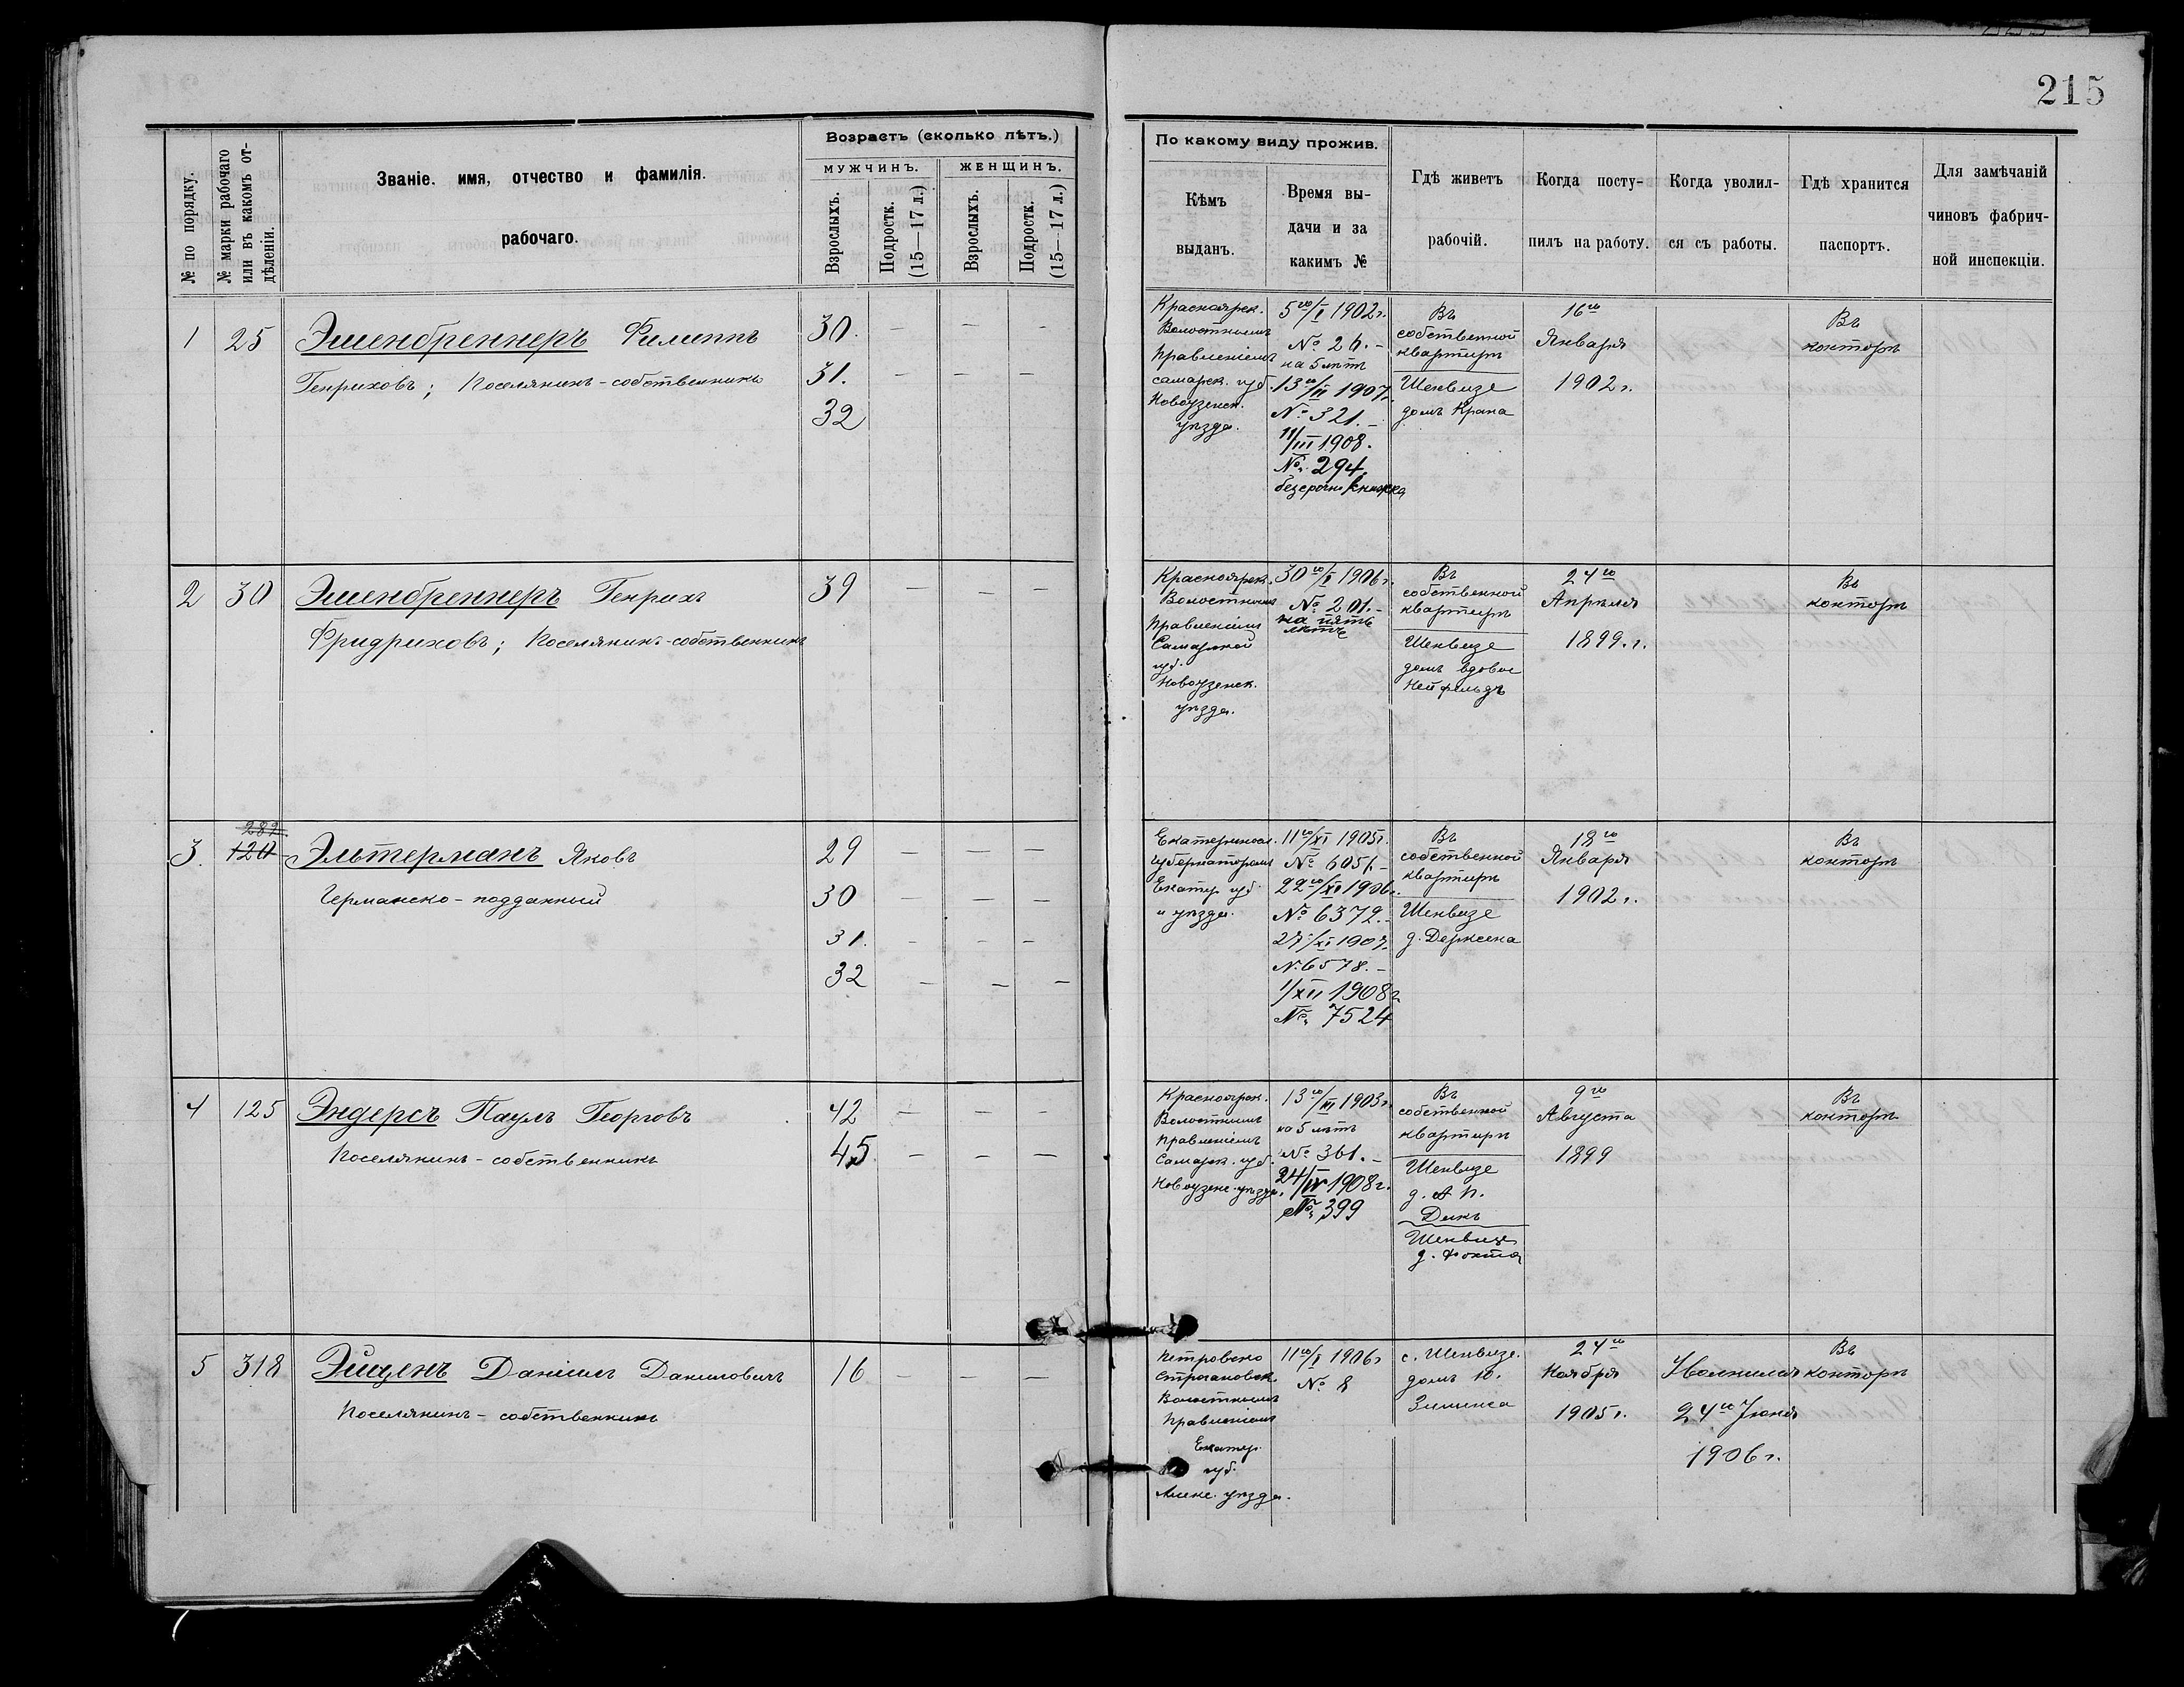 215
№ по порядку.
№ марки рабочаго
или въ какомъ от-
дѣленіи.
Званіе, имя, отчество и фамилія.
рабочаго.
Возрастъ (сколько лѣтъ.)
МУЖЧИНЪ.
ЖЕНЩИНЪ.
Взрослыхъ.
Подростк.
(15—17 л.)
Взрослыхъ.
Подростк.
(15—17 л.)
По какому виду прожив.
Кѣмъ
выданъ.
Время вы-
дачи и за
какимъ №
Гдѣ живетъ
рабочій.
Когда посту-
пилъ на работу.
Когда уволил-
ся съ работы.
Гдѣ хранится
паспортъ.
Для замѣчаній
чиновъ фабрич-
ной инспекціи.
1
25
Эшенбреннеръ Филиппъ
Генриховъ; Поселянинъ-собственникъ
30. — — —
31. — — —
32
Красноярск.
Волостнымъ
Правленіемъ
самарск. губ.
Новоузенск.
уѣзда.
5го/I 1902г.
№ 26.—
на 5 лѣтъ
13го/II 1907г.
№ 321.—
11/III 1908.
№ 294.
безсрочн книжка
Въ
собственной
квартирѣ
Шенвизе
домъ Крана
16го
Января
1902г.
Въ
конторѣ
2
30
Эшенбреннеръ Генрихъ
Фридриховъ; Поселянинъ-собственникъ
39 — — —
Красноярск.
Волостнымъ
Правленіемъ
Самарской
губ.
Новоузенск.
уѣзда.
30го/I 1906г.
№ 201.—
на пять
лѣтъ
Въ
собственной
квартирѣ
Шенвизе
домъ вдовы
Нейфельдъ
24го
Апрѣля
1899.г.
Въ
конторѣ
3.
282.
120
Эльтерманъ Яковъ
Германско-подданный
29 — — —
30 — — —
31. — — —
32 — — —
Екатериносл.
губернаторомъ
Екатер губ.
и уѣзда.
11го/XI 1905г.
№ 6051.—
22го/XI 1906г.
№ 6372.—
27/XI 1907.
№ 6578.—
1/XII 1908г
№ 7524
Въ
собственной
квартирѣ
Шенвизе
д. Дерксена
18го
Января
1902г.
Въ
конторѣ
4
125
Эндерсъ Паулъ Георговъ
Поселянинъ-собственникъ
42 — — —
45. — — —
Красноярск.
Волостнымъ
Правленіемъ
Самарск. губ.
Новоузенс. уѣзда.
13го/III 1903г.
на 5 лѣтъ
№ 361.—
24/IV 1908г.
№ 399
Въ
собственной
квартирѣ
Шенвизе
д. А П.
Дикъ
Шенвизе
д. Фокта
9го
Августа
1899
Въ
конторѣ
5
318
Эйценъ Даніилъ Даниловичъ
Поселянинъ-собственникъ
16 — — —
Петровско
Строгановск
Волостнымъ
Правленіемъ
Екатер.
губ.
Алекс. уѣзда.
11го/I 1906г
№ 8
с. Шенвизе.
домъ Ю.
24го
Ноября
1905г.
Уволился
24го Іюня
1906г.
Въ
конторѣ